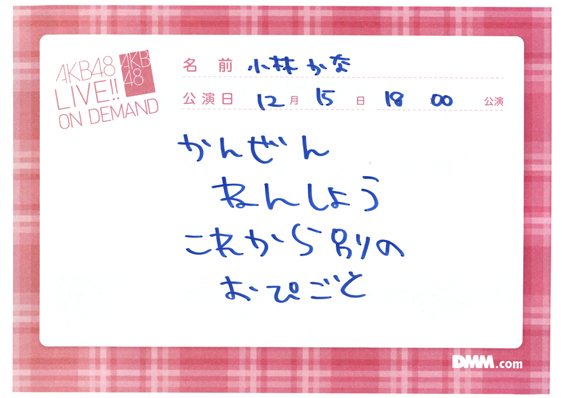 AKB48
LIVE!!
ON DEMAND
AKB
48
名前 小林 かな
公演日 12月 15日 18 00 公演
かんぜん
ねんしょう
これから別の
おぴごと
DMM.com